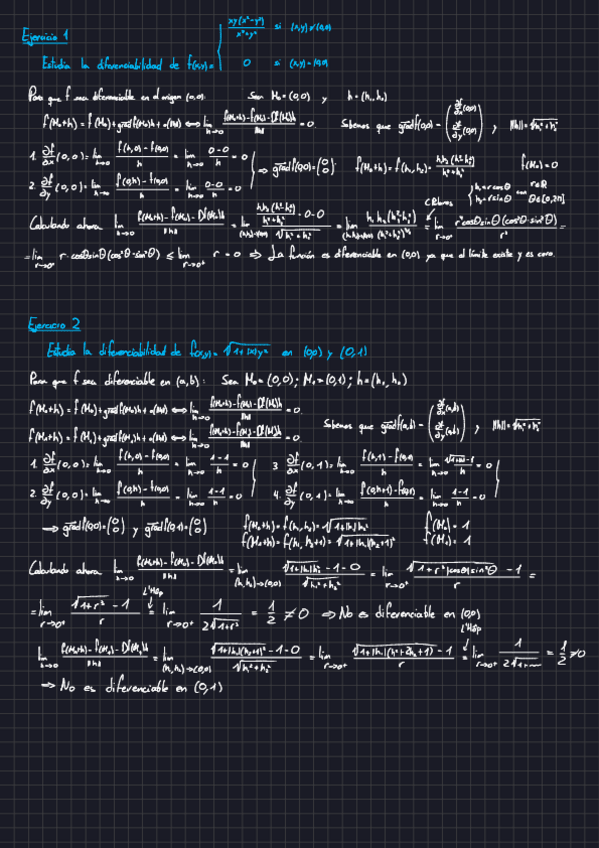 Ejercicio 1
Estudia la diferenciabilidad de f(x,y) = { xy(x²-y²)/(x²+y²) si (x,y)≠(0,0)
0 si (x,y)=(0,0)
Para que f sea diferenciable en el origen (0,0): Sean M₀=(0,0) y h=(h₁,h₂)
f(M₀+h) = f(M₀)+gradf(M₀)h + o(‖h‖) ⟺ lim h→0 (f(M₀+h)-f(M₀)-Df(M₀)h)/‖h‖ = 0. Sabemos que gradf(0,0) = (∂f/∂x(0,0) ∂f/∂y(0,0)) y ‖h‖=√(h₁²+h₂²)
1. ∂f/∂x (0,0) = lim h→0 (f(h,0)-f(0,0))/h = lim h→0 (0-0)/h = 0
2. ∂f/∂y (0,0) = lim h→0 (f(0,h)-f(0,0))/h = lim h→0 (0-0)/h = 0
⟹ gradf(0,0)=(0 0) f(M₀+h) = f(h₁,h₂) = h₁h₂(h₁²-h₂²)/(h₁²+h₂²) f(M₀)=0
C.Polares { h₁=r cosθ h₂=r sinθ r∈ℝ θ∈[0,2π]
Calculando ahora lim h→0 (f(M₀+h)-f(M₀)-Df(M₀)h)/‖h‖ = lim (h₁,h₂)→(0,0) (h₁h₂(h₁²-h₂²)/(h₁²+h₂²) -0-0)/√(h₁²+h₂²) = lim (h₁,h₂)→(0,0) h₁h₂(h₁²-h₂²)/(h₁²+h₂²)^(3/2) = lim r→0⁺ r⁴cosθsinθ(cos²θ-sin²θ)/r³ =
= lim r→0⁺ r·cosθsinθ(cos²θ-sin²θ) ≤ lim r→0⁺ r = 0 ⟹ La función es diferenciable en (0,0) ya que el límite existe y es cero.
Ejercicio 2
Estudia la diferenciabilidad de f(x,y) = √(1+|x|y²) en (0,0) y (0,1)
Para que f sea diferenciable en (a,b): Sea M₀=(0,0); M₁=(0,1); h=(h₁,h₂)
f(M₀+h) = f(M₀)+gradf(M₀)h + o(‖h‖) ⟺ lim h→0 (f(M₀+h)-f(M₀)-Df(M₀)h)/‖h‖ = 0
f(M₁+h) = f(M₁)+gradf(M₁)h + o(‖h‖) ⟺ lim h→0 (f(M₁+h)-f(M₁)-Df(M₁)h)/‖h‖ = 0.
Sabemos que gradf(a,b) = (∂f/∂x(a,b) ∂f/∂y(a,b)) y ‖h‖=√(h₁²+h₂²)
1. ∂f/∂x (0,0) = lim h→0 (f(h,0)-f(0,0))/h = lim h→0 (1-1)/h = 0 3. ∂f/∂x (0,1) = lim h→0 (f(h,1)-f(0,1))/h = lim h→0 (√(1+|h|)-1)/h = 0
2. ∂f/∂y (0,0) = lim h→0 (f(0,h)-f(0,0))/h = lim h→0 (1-1)/h = 0 4. ∂f/∂y (0,1) = lim h→0 (f(0,h+1)-f(0,1))/h = lim h→0 (1-1)/h = 0
⟹ gradf(0,0)=(0 0) y gradf(0,1)=(0 0) f(M₀+h) = f(h₁,h₂) = √(1+|h₁|h₂²) f(M₀)=1
f(M₁+h) = f(h₁,h₂+1) = √(1+|h₁|(h₂+1)²) f(M₁)=1
Calculando ahora lim h→0 (f(M₀+h)-f(M₀)-Df(M₀)h)/‖h‖ = lim (h₁,h₂)→(0,0) (√(1+|h₁|h₂²)-1-0)/√(h₁²+h₂²) = lim r→0⁺ (√(1+r³|cosθ|sin²θ)-1)/r =
L'Hôp
= lim r→0⁺ (√(1+r³)-1)/r = lim r→0⁺ 1/(2√(1+r³)) = 1/2 ≠ 0 ⟹ No es diferenciable en (0,0)
L'Hôp
lim h→0 (f(M₁+h)-f(M₁)-Df(M₁)h)/‖h‖ = lim (h₁,h₂)→(0,0) (√(1+|h₁|(h₂+1)²)-1-0)/√(h₁²+h₂²) = lim r→0⁺ (√(1+|h₁|(h₂²+2h₂+1))-1)/r = lim r→0⁺ 1/(2√(1+...)) = 1/2 ≠ 0
⟹ No es diferenciable en (0,1)